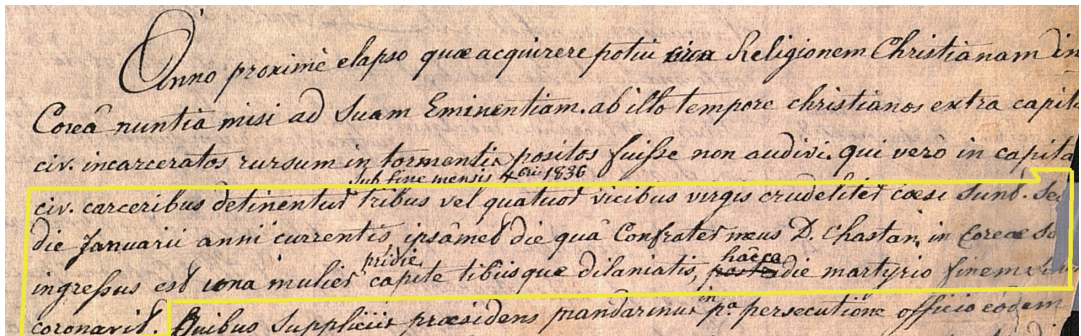 Anno proximè elapso quæ acquirere potui circa Religionem Christianam in
Coreâ nuntia misi ad Suam Eminentiam. ab illo tempore christianos extra capit
civ. incarceratos rursum in tormentis positos fuisse non audivi. qui verò in capita
sub fine mensis
1836
civ. carceribus detinentur tribus vel quatuor vicibus virgis crudeliter cæsi sunt. Se
die Januarii anni currentis, ipsâmet die quâ Confrater meus D. Chastan, in Coreæ
pridie
ingressus est una mulier capite tibiisque dilaniatis, die martyrio finem
in
coronavit. Quibus suppliciis præsidens mandarinus pa persecutione officio eodem